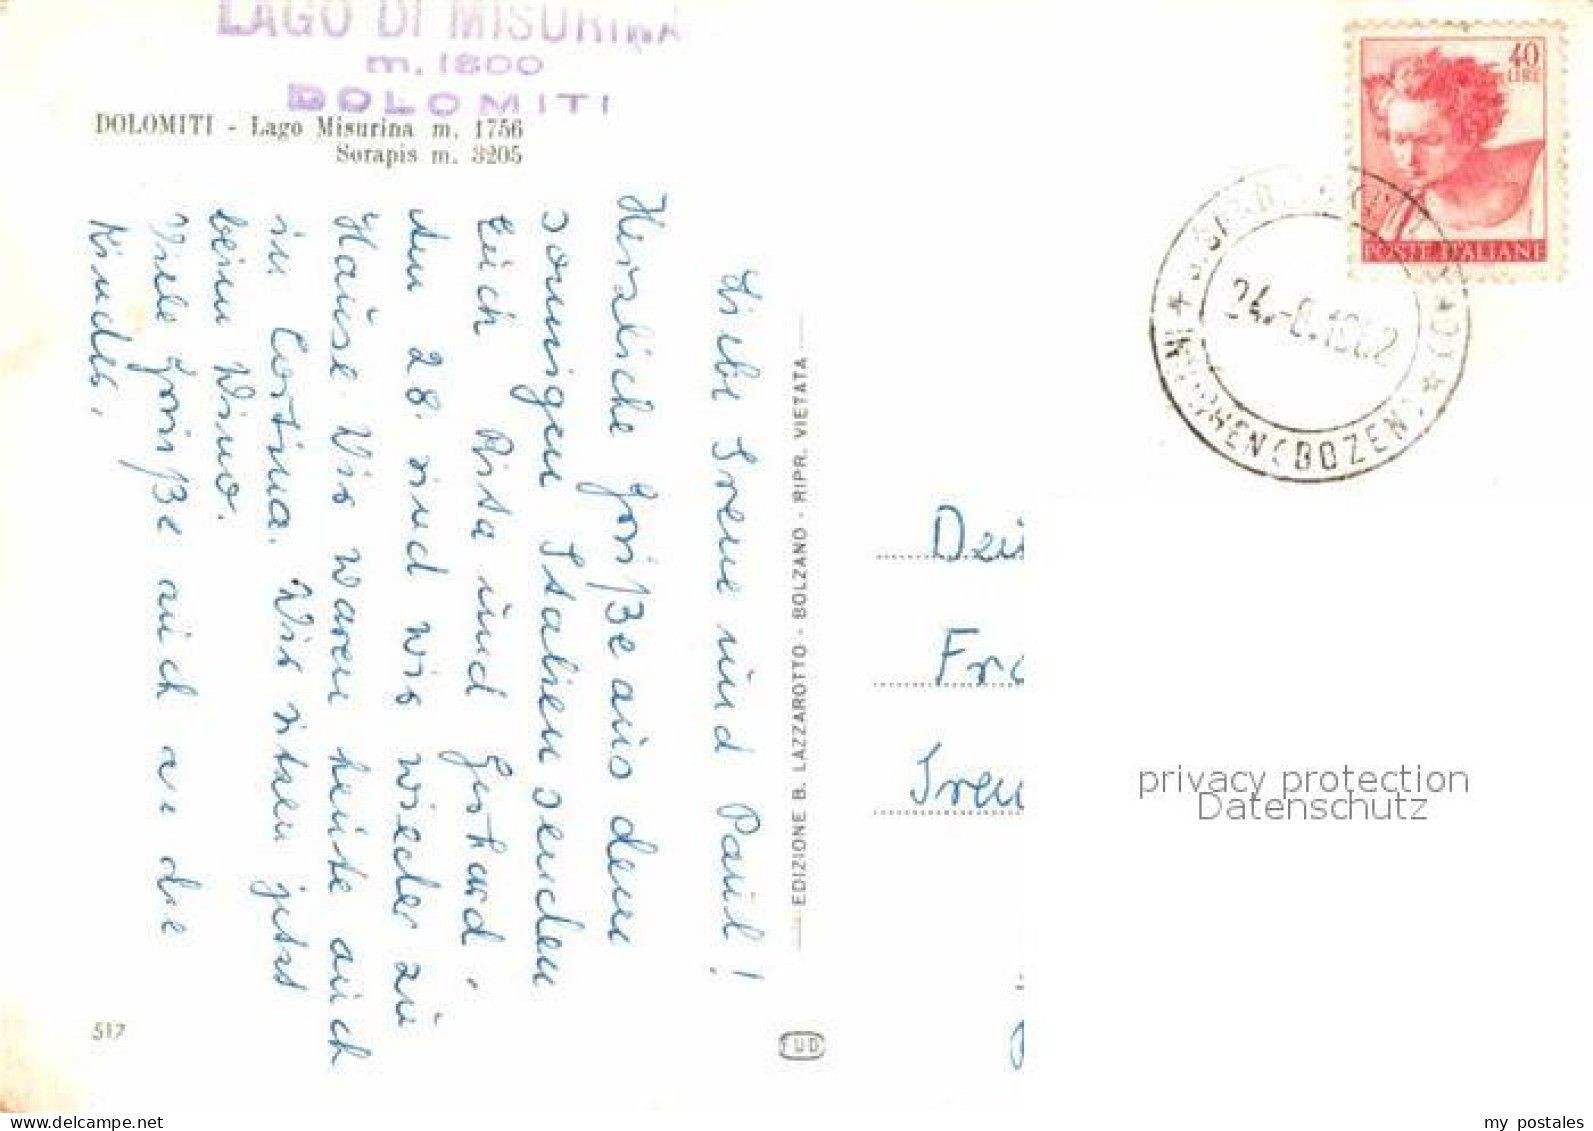 LAGO DI MISURINA
m. 1800
DOLOMITI
DOLOMITI - Lago Misurina m. 1756
Sorapis m. 3205
40
LIRE
POSTE ITALIANE
24.-8.1962
INNICHEN (BOZEN)
Liebe Irene und Paul!
Herzliche Grüße aus dem
sonnigen Italien senden
Euch Rita und Gerhard.
Am 28. sind wir wieder zu
Hause. Wir waren heute auch
in Cortina. Wir sitzen jetzt
beim Wino.
Viele Grüße auch an die
Kinder.
EDIZIONE B. LAZZAROTTO - BOLZANO - RIPR. VIETATA
517
FUD
Dzi
Fra
Iren
privacy protection
Datenschutz
my postales